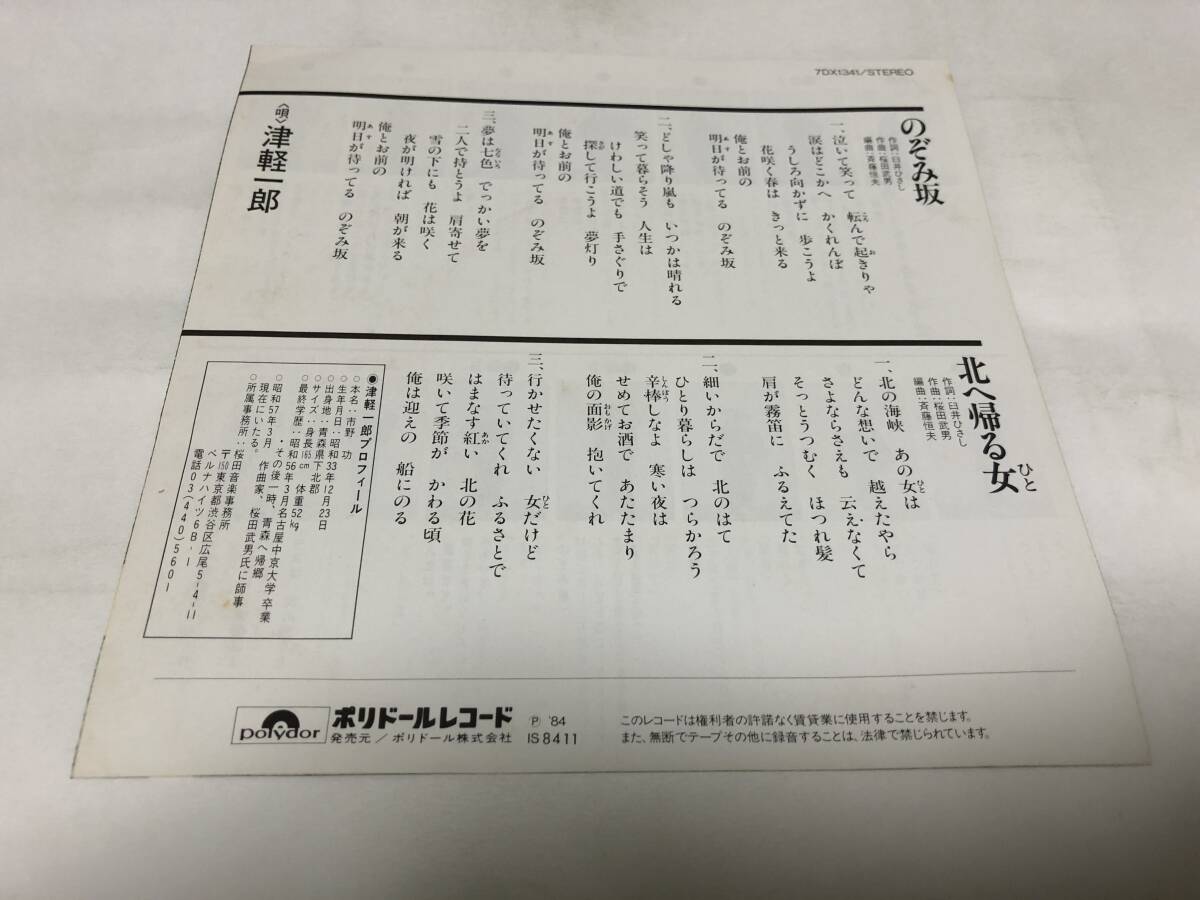 7DX1341/STEREO
のぞみ坂
作詞:臼井ひさし
作曲:桜田武男
編曲:斉藤恒夫
一、泣いて笑って 転んで起きりゃ
涙はどこかへ かくれんぼ
うしろ向かずに 歩こうよ
花咲く春は きっと来る
俺とお前の
明日が待ってる のぞみ坂
二、どしゃ降り嵐も いつかは晴れる
笑って暮らそう 人生は
けわしい道でも 手さぐりで
探して行こうよ 夢灯り
俺とお前の
明日が待ってる のぞみ坂
三、夢は七色 でっかい夢を
二人で持とうよ 肩寄せて
雪の下にも 花は咲く
夜が明ければ 朝が来る
俺とお前の
明日が待ってる のぞみ坂
〈唄〉津軽一郎
北へ帰る女
作詞:臼井ひさし
作曲:桜田武男
編曲:斉藤恒夫
一、北の海峡 あの女は
どんな想いで 越えたやら
さよならさえも 云えなくて
そっとうつむく ほつれ髪
肩が霧笛に ふるえてた
二、細いからだで 北のはて
ひとり暮らしは つらかろう
辛棒しなよ 寒い夜は
せめてお酒で あたたまり
俺の面影 抱いてくれ
三、行かせたくない 女だけど
待っていてくれ ふるさとで
はまなす紅い 北の花
咲いて季節が かわる頃
俺は迎えの 船にのる
●津軽一郎プロフィール
○本名:市野 功
○生年月日:昭和33年12月23日
○出身地:青森県下北郡
○サイズ:身長165cm 体重52kg
○最終学歴:昭和56年3月名古屋中京大学卒業
・その後一時、青森へ帰郷
○昭和57年3月、作曲家、桜田武男氏に師事
現在にいたる。
○所属事務所:桜田音楽事務所
〒150東京都渋谷区広尾5-4-11
ベルナハイツ6B-1
電話03(440)5601
polydor
ポリドールレコード
発売元/ポリドール株式会社
Ⓟ '84
IS8411
このレコードは権利者の許諾なく賃貸業に使用することを禁じます。
また、無断でテープその他に録音することは、法律で禁じられています。